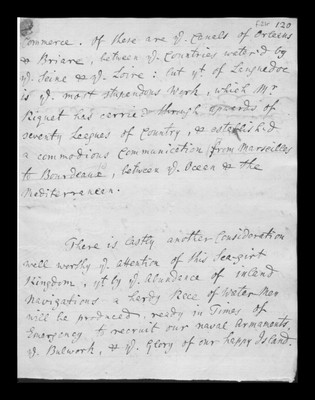 120
Commerce. Of these are ye. Canals of Orleans
& Briare, between ye. Countries water'd by
ye. Seine & ye. Loire: but yt. of Languedoc
is ye. most stupendous Work, which Mr.
Riquet has carried through upwards of
seventy Leagues of Country, & establish'd
a commodious Communication from Marseilles
to Bourdeaux, between ye. Ocean & the
Mediterranean.
There is lastly another Consideration
well worthy ye. attention of this Sea-girt
Kingdom, yt. by ye. Abundance of inland
Navigations a hardy Race of Water-Men
will be produced, ready in Times of
Emergency to recruit our naval Armaments,
ye. Bulwork, & ye. Glory of our happy Island.